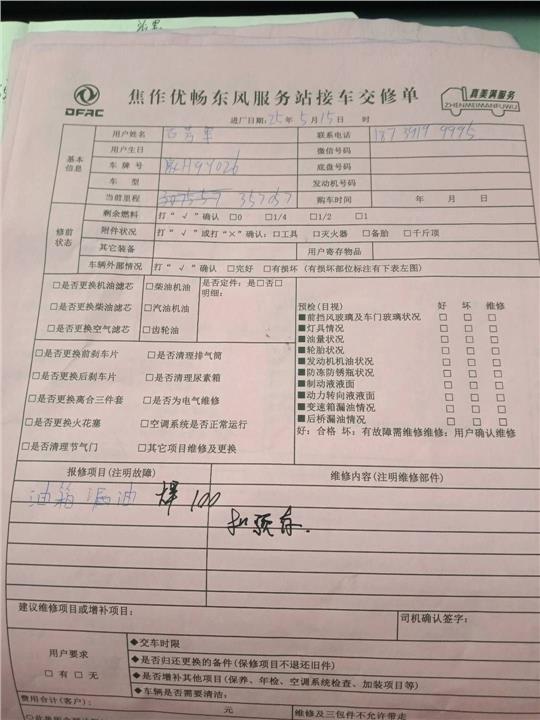 DFAC
焦作优畅东风服务站接车交修单
真美满服务
ZHENMEIMANFUWU
进厂日期：25年5月15日 时
基本信息
用户姓名 联系电话
用户生日 微信号码
车牌号 底盘号码
车型 发动机号码
当前里程 357057 购车时间 年 月 日
修前状态
剩余燃料 打“√”确认 □0 □1/4 □1/2 □1
附件状况 打“√”或打“×”确认：□工具 □灭火器 □备胎 □千斤顶
其它装备 用户寄存物品
车辆外部情况 打“√”确认 □完好 □有损坏（有损坏部位标注有下表左图）
□是否更换机油滤芯 □柴油机油 是否定件：是□否□
明细：
□是否更换柴油滤芯 □汽油机油
□是否更换空气滤芯 □齿轮油
□是否更换前刹车片 □是否清理排气筒
□是否更换后刹车片 □是否清理尿素箱
□是否更换离合三件套 □是否为电气维修
□是否更换火花塞 □空调系统是否正常运行
□是否清理节气门 □其它项目维修及更换
预检(目视) 好 坏 维修
■前挡风玻璃及车门玻璃状况 □ □ □
■灯具情况 □ □ □
■油量状况 □ □ □
■轮胎状况 □ □ □
■发动机机油状况 □ □ □
■防冻防锈瓶状况 □ □ □
■制动液液面 □ □ □
■动力转向液液面 □ □ □
■变速箱漏油情况 □ □ □
■后桥漏油情况 □ □ □
好：合格 坏：有故障需维修维修：用户确认维修
报修项目(注明故障) 维修内容(注明维修部件)
油箱漏油 焊100
扣预存.
建议维修项目或增补项目： 司机确认签字：
用户要求
□有 □无
◆交车时限
◆是否归还更换的备件(保修项目不退还旧件)
◆是否增补其他项目(保养、年检、空调系统检查、加装项目等)
◆车辆是否需要清洁：
费用合计(客户)： 元 维修及三包件不允许带走